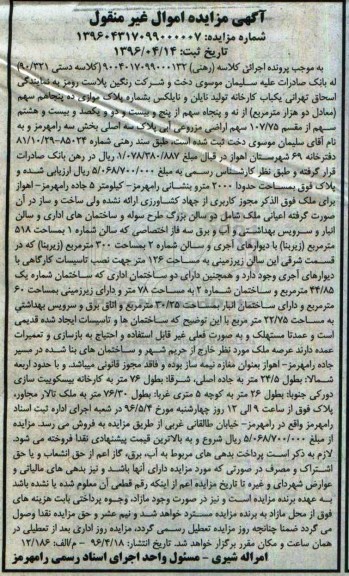 آگهی مزایده اموال غیر منقول
شماره مزایده: ۱۳۹۶۰۴۳۱۷۰۹۹۰۰۰۰۰۷
تاریخ ثبت: ۱۳۹۶/۰۴/۱۴
به موجب پرونده اجرائی کلاسه (رهنی) ۹۰۰۴۰۱۷۰۹۹۰۰۰۱۳۲ (کلاسه دستی ۹۰/۳۲۱)
له بانک صادرات علیه سلیمان موسوی دخت و شرکت رنگین پلاست رومز به نمایندگی
اسحاق تهرانی یکباب کارخانه تولید نایان و نایلکس بشماره پلاک موازی ده پنجاهم سهم
(معادل دو هزار مترمربع) از نه و پنجاه سهم از پنج و بیست و دو و یکصد و بیست و هشتم
سهم از مقسم ۱۰۷/۷۵ سهم اراضی مزروعی آبی پلاک سه اصلی بخش سه رامهرمز و به
نام آقای سلیمان موسوی دخت ثبت شده است، طبق سند رهنی شماره ۸۵۰۲۳–۸۱/۱۰/۲۹
دفترخانه ۶۹ شهرستان اهواز در قبال مبلغ ۱/۰۷۸/۳۸۰/۸۸۷ ریال در رهن بانک صادرات
قرار گرفته و طبق نظر کارشناس رسمی به مبلغ ۵/۰۶۸/۷۰۰/۰۰۰ ریال ارزیابی شده و
پلاک فوق بمساحت حدودا ۲۰۰۰ مترو بنشانی رامهرمز– کیلومتر ۵ جاده رامهرمز– اهواز
برای ملک فوق الذکر مجوز کاربری از جهاد کشاورزی ارائه نشده ولی ساخت و ساز در آن
صورت گرفته اعیانی ملک شامل دو سالن بزرگ طرح سوله و ساختمان های اداری و سالن
انبار و سرویس بهداشتی و آب و برق سه فاز اختصاصی که سالن شماره ۱ بمساحت ۵۱۸
مترمربع (زیربنا) با دیوارهای آجری و سالن شماره ۲ بمساحت ۳۰۰ مترمربع (زیربنا) که در
قسمت شرقی این سالن زیرزمینی به مساحت ۱۲۶ متر جهت نصب تاسیسات کارگاهی با
دیوارهای آجری وجود دارد و همچنین دارای دو ساختمان اداری که ساختمان شماره یک
۴۴/۸۵ مترمربع و ساختمان شماره ۲ به مساحت ۷۸ متر و دارای زیرزمینی بمساحت ۶۰
مترمربع و دارای ساختمان انبار به مساحت ۳۰/۲۵ مترمربع و اتاق برق و سرویس بهداشتی
به مساحت ۲۲/۷۵ متر مربع با این توضیح که ساختمان ها و تاسیسات ایجاد شده قدیمی
است و عمدتا مستهلک و به صورت فعلی غیر قابل استفاده و احتیاج به بازسازی و تعمیرات
عمده دارند عرصه ملک مورد نظر خارج از حریم شهر و ساختمان های بنا شده در مسیر
جاده رامهرمز– اهواز بعنوان مغازه نیمه ساز بوده و فاقد مجوز قانونی میباشد. و با حدود اربعه
شمالا: بطول ۲۴/۵ متر به جاده اصلی، شرقا: بطول ۷۶ متر به کارخانه بیسکوییت سازی
دورکی جنوبا: بطول ۲۶ متر به کوچه ۵ متری غربا: بطول ۷۶/۳۰ متر به ملک تالار مجاور،
پلاک فوق از ساعت ۹ الی ۱۲ روز چهارشنبه مورخ ۹۶/۵/۴ در شعبه اجرای اداره ثبت اسناد
رامهرمز واقع در رامهرمز– خیابان طالقانی غربی از طریق مزایده به فروش می رسد. مزایده
از مبلغ ۵/۰۶۸/۷۰۰/۰۰۰ ریال شروع و به بالاترین قیمت پیشنهادی نقدا فروخته می شود.
لازم به ذکر است پرداخت بدهی های مربوط به آب، برق، گاز اعم از حق انشعاب و یا حق
اشتراک و مصرف در صورتی که مورد مزایده دارای آنها باشد و نیز بدهی های مالیاتی و
عوارض شهرداری و غیره تا تاریخ مزایده اعم از اینکه رقم قطعی آن معلوم شده یا نشده باشد
به عهده برنده مزایده است و نیز در صورت وجود مازاد، وجوه پرداختی بابت هزینه های
فوق از محل مازاد به برنده مزایده مسترد خواهد شد و نیم عشر و حق مزایده نقدا وصول
می گردد ضمنا چنانچه روز مزایده تعطیل رسمی گردد، مزایده روز اداری بعد از تعطیلی در
همان ساعت و مکان مقرر برگزار خواهد شد. تاریخ انتشار: ۹۶/۴/۱۸ – م/الف: ۱۲/۱۸۶
امراله شیری – مسئول واحد اجرای اسناد رسمی رامهرمز